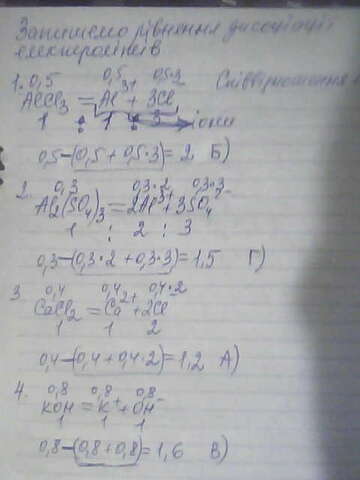 Запишемо рівняння дисоціації
електролітів
1. 0,5 0,5 0,5·3 Співвідношення
AlCl3 = Al3+ + 3Cl-
1 : 1 : 3 → іони
0,5-(0,5+0,5·3)=2 Б)
2. 0,3 0,3·2 0,3·3
Al2(SO4)3 = 2Al3+ + 3SO4 2-
1 : 2 : 3
0,3-(0,3·2+0,3·3)=1,5 Г)
3 0,4 0,4 0,4·2
CaCl2 = Ca2+ + 2Cl-
1 1 2
0,4-(0,4+0,4·2)=1,2 А)
4. 0,8 0,8 0,8
KOH = K+ + OH-
1 1 1
0,8-(0,8+0,8)=1,6 В)